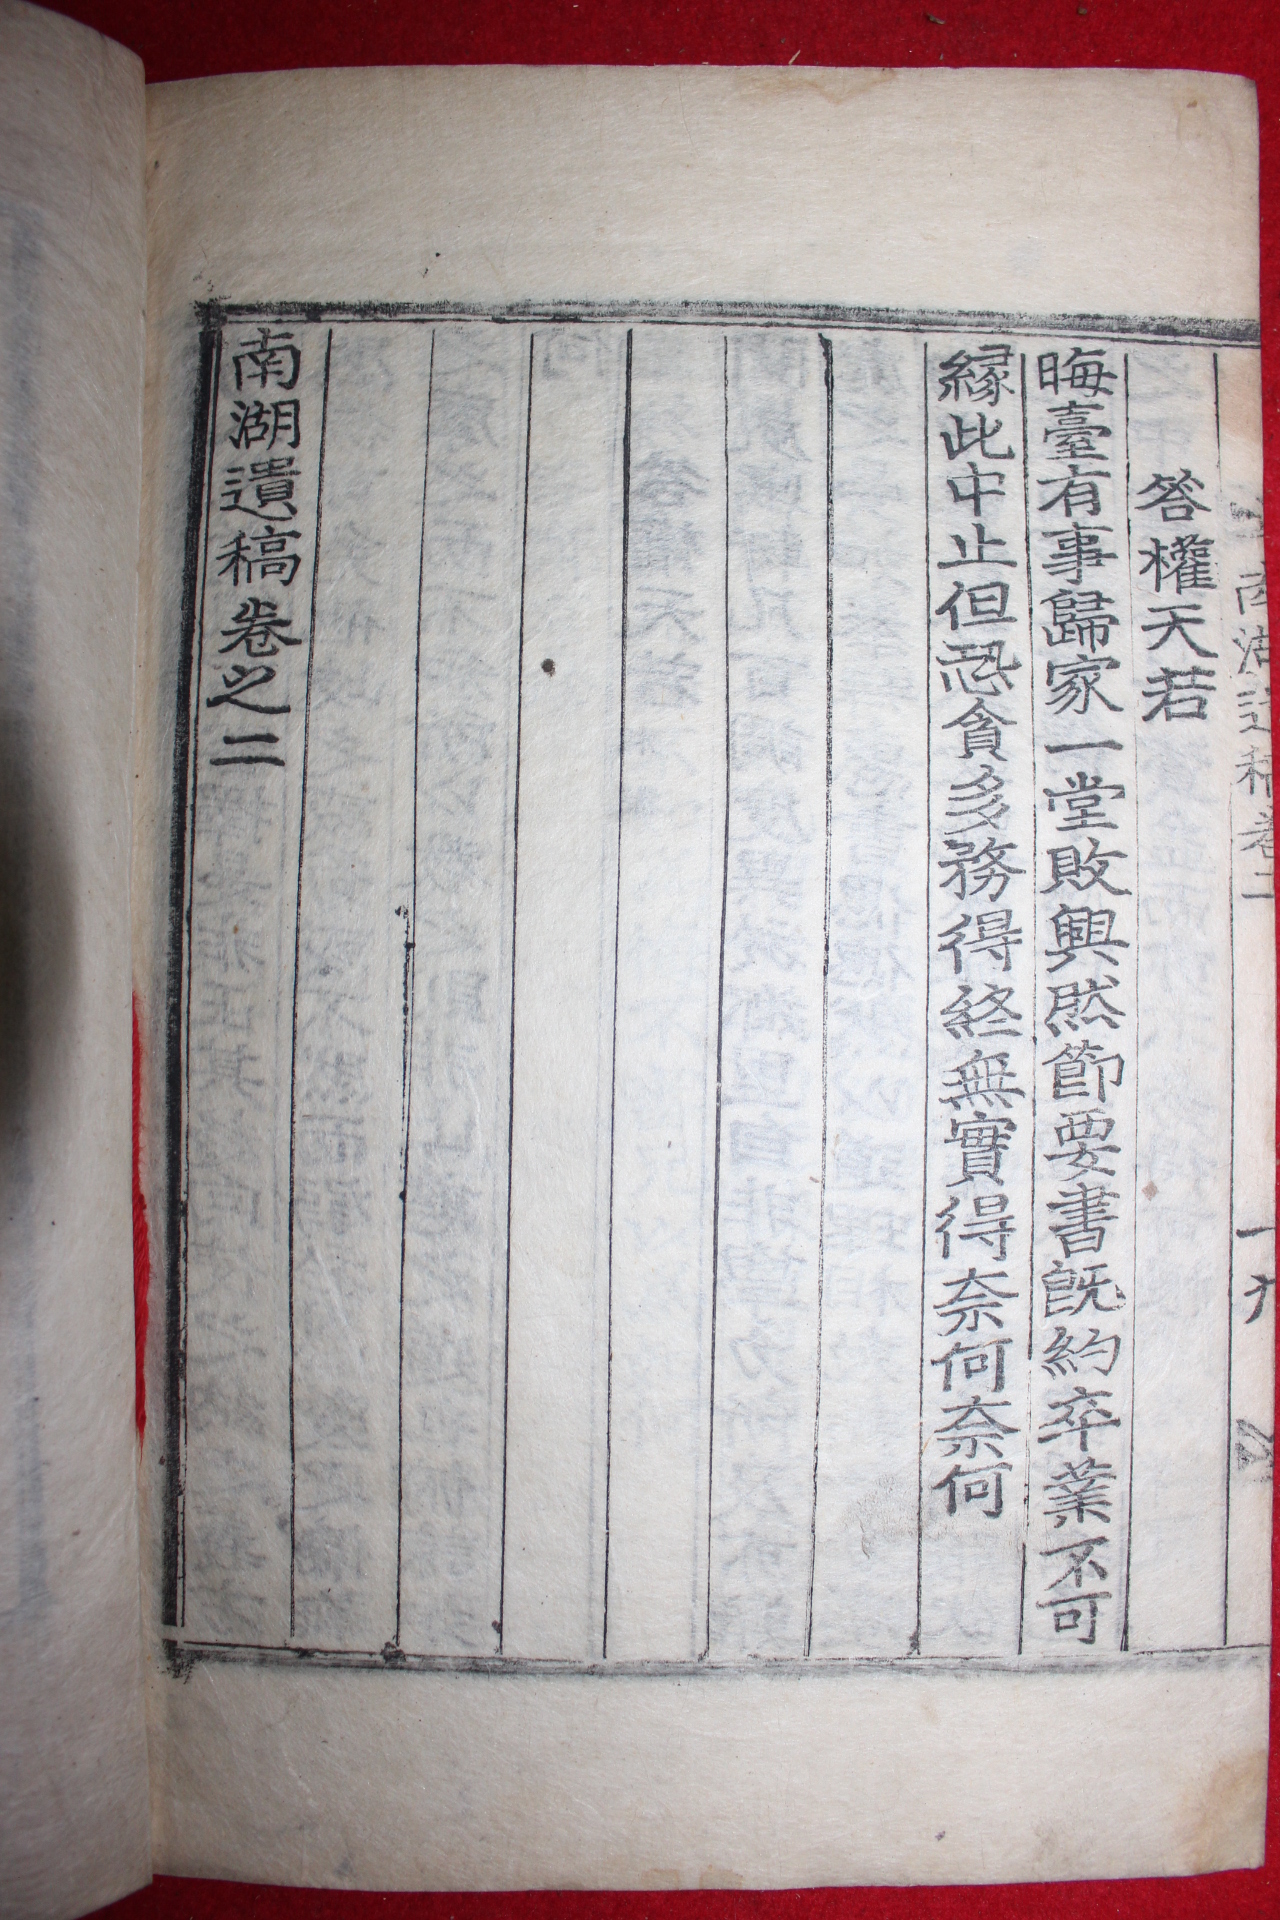 南湖遺稿卷二
一九
答權天若
晦臺有事歸家一堂敗興然節要書旣約卒業不可
緣此中止但恐貪多務得終無實得奈何奈何
南湖遺稿卷之二